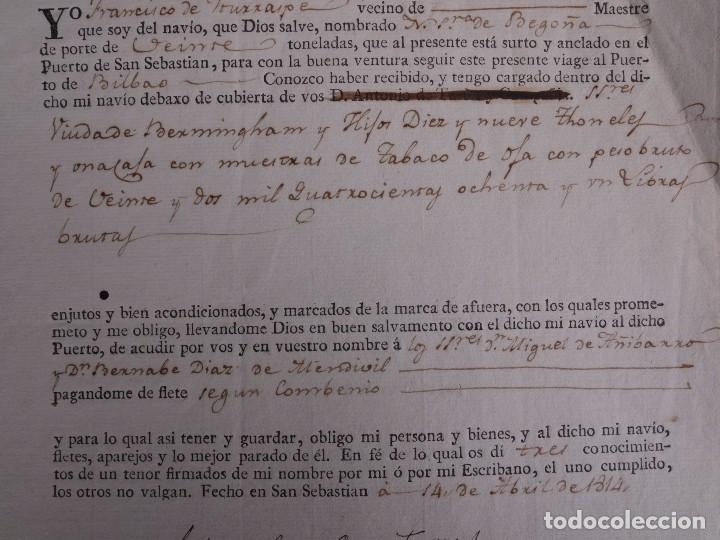 YO Francisco de Iturraspe vecino de Maestre
que soy del navío, que Dios salve, nombrado N. Sra de Begoña
de porte de Veinte toneladas, que al presente está surto y anclado en el
Puerto de San Sebastian, para con la buena ventura seguir este presente viage al Puer-
to de Bilbao Conozco haber recibido, y tengo cargado dentro del di-
cho mi navío debaxo de cubierta de vos D. Antonio de SSres
Viuda de Bermingham y Hijos Diez y nueve Thoneles
y una Caja con muestras de Tabaco de oja con peso bruto
de Veinte y dos mil Quatrocientas ochenta y un Libras
brutas
enjutos y bien acondicionados, y marcados de la marca de afuera, con los quales prome-
meto y me obligo, llevandome Dios en buen salvamento con el dicho mi navío al dicho
Puerto, de acudir por vos y en vuestro nombre á los SSres Dn Miguel de Añibarro
y Dn Bernabe Diaz de Mendivil
pagandome de flete segun Combenio
y para lo qual asi tener y guardar, obligo mi persona y bienes, y al dicho mi navío,
fletes, aparejos y lo mejor parado de él. En fé de lo qual os dí tres conocimien-
tos de un tenor firmados de mi nombre por mi ó por mi Escribano, el uno cumplido,
los otros no valgan. Fecho en San Sebastian á 14, de Abril de 1814,
todocoleccion
todocoleccion.net